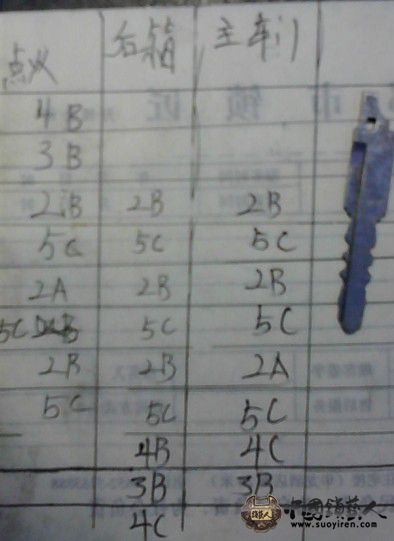 点火 后箱 主车门
市 锁 匠
4B
3B
2B 2B 2B
5C 5C 5C
2A 2B 2B
5C 5C 5C
2B 2B 2A
5C 5C 5C
4B 4C
3B 3B
4C
中國鎖藝人
www.suoyiren.com